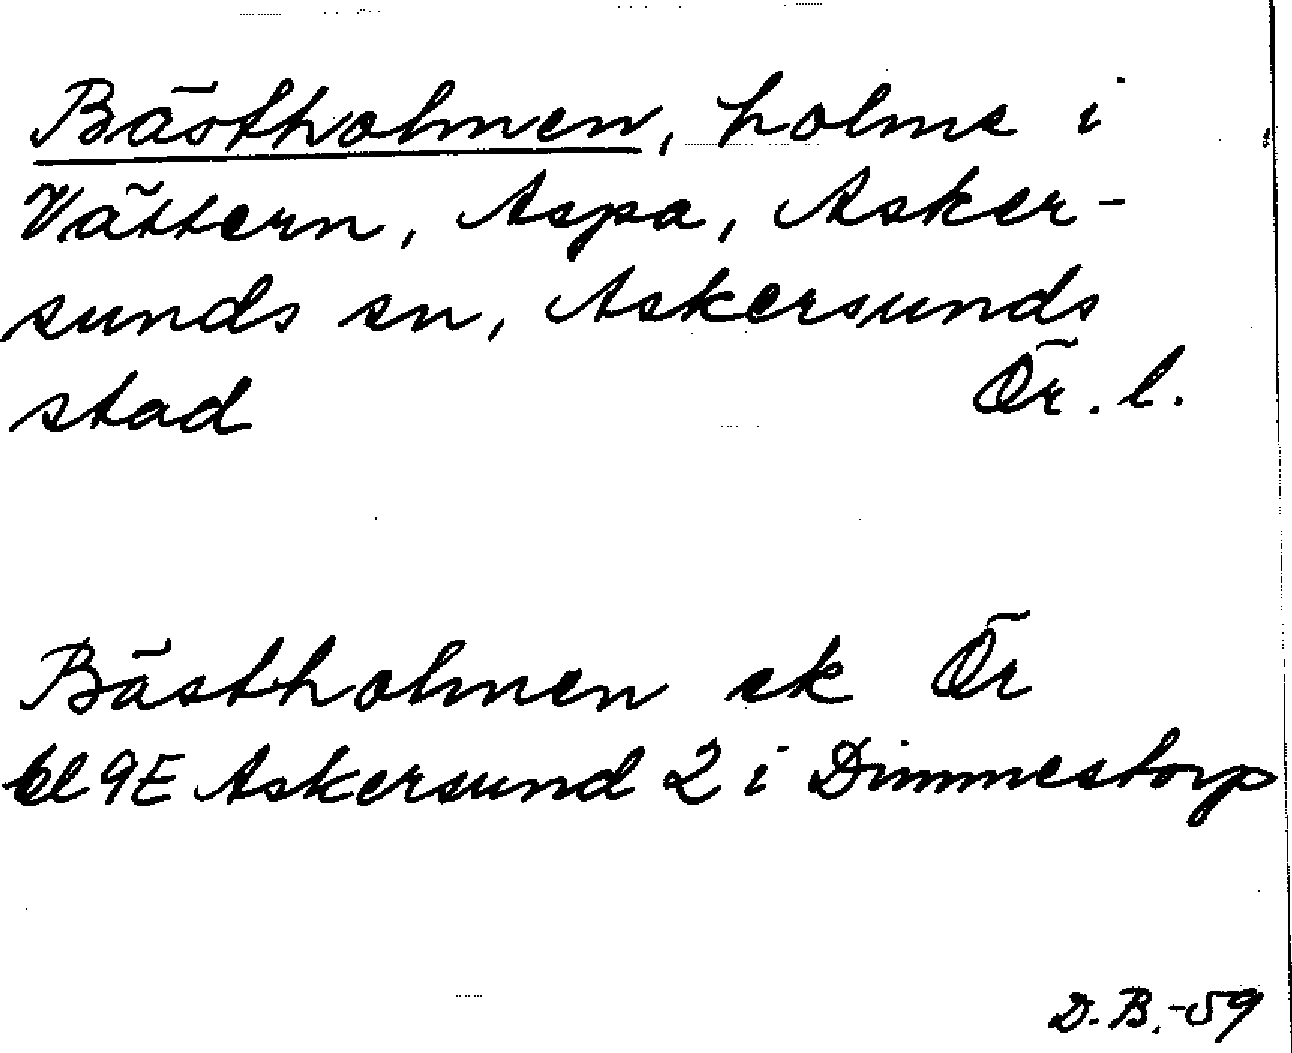 Bästholmen, holme i
Vättern, Aspa, Asker-
sunds sn, Askersunds
stad Ör. l.
Bästholmen ek Ör
bl 9E Askersund 2 i Dimmestorp
D.B.-59